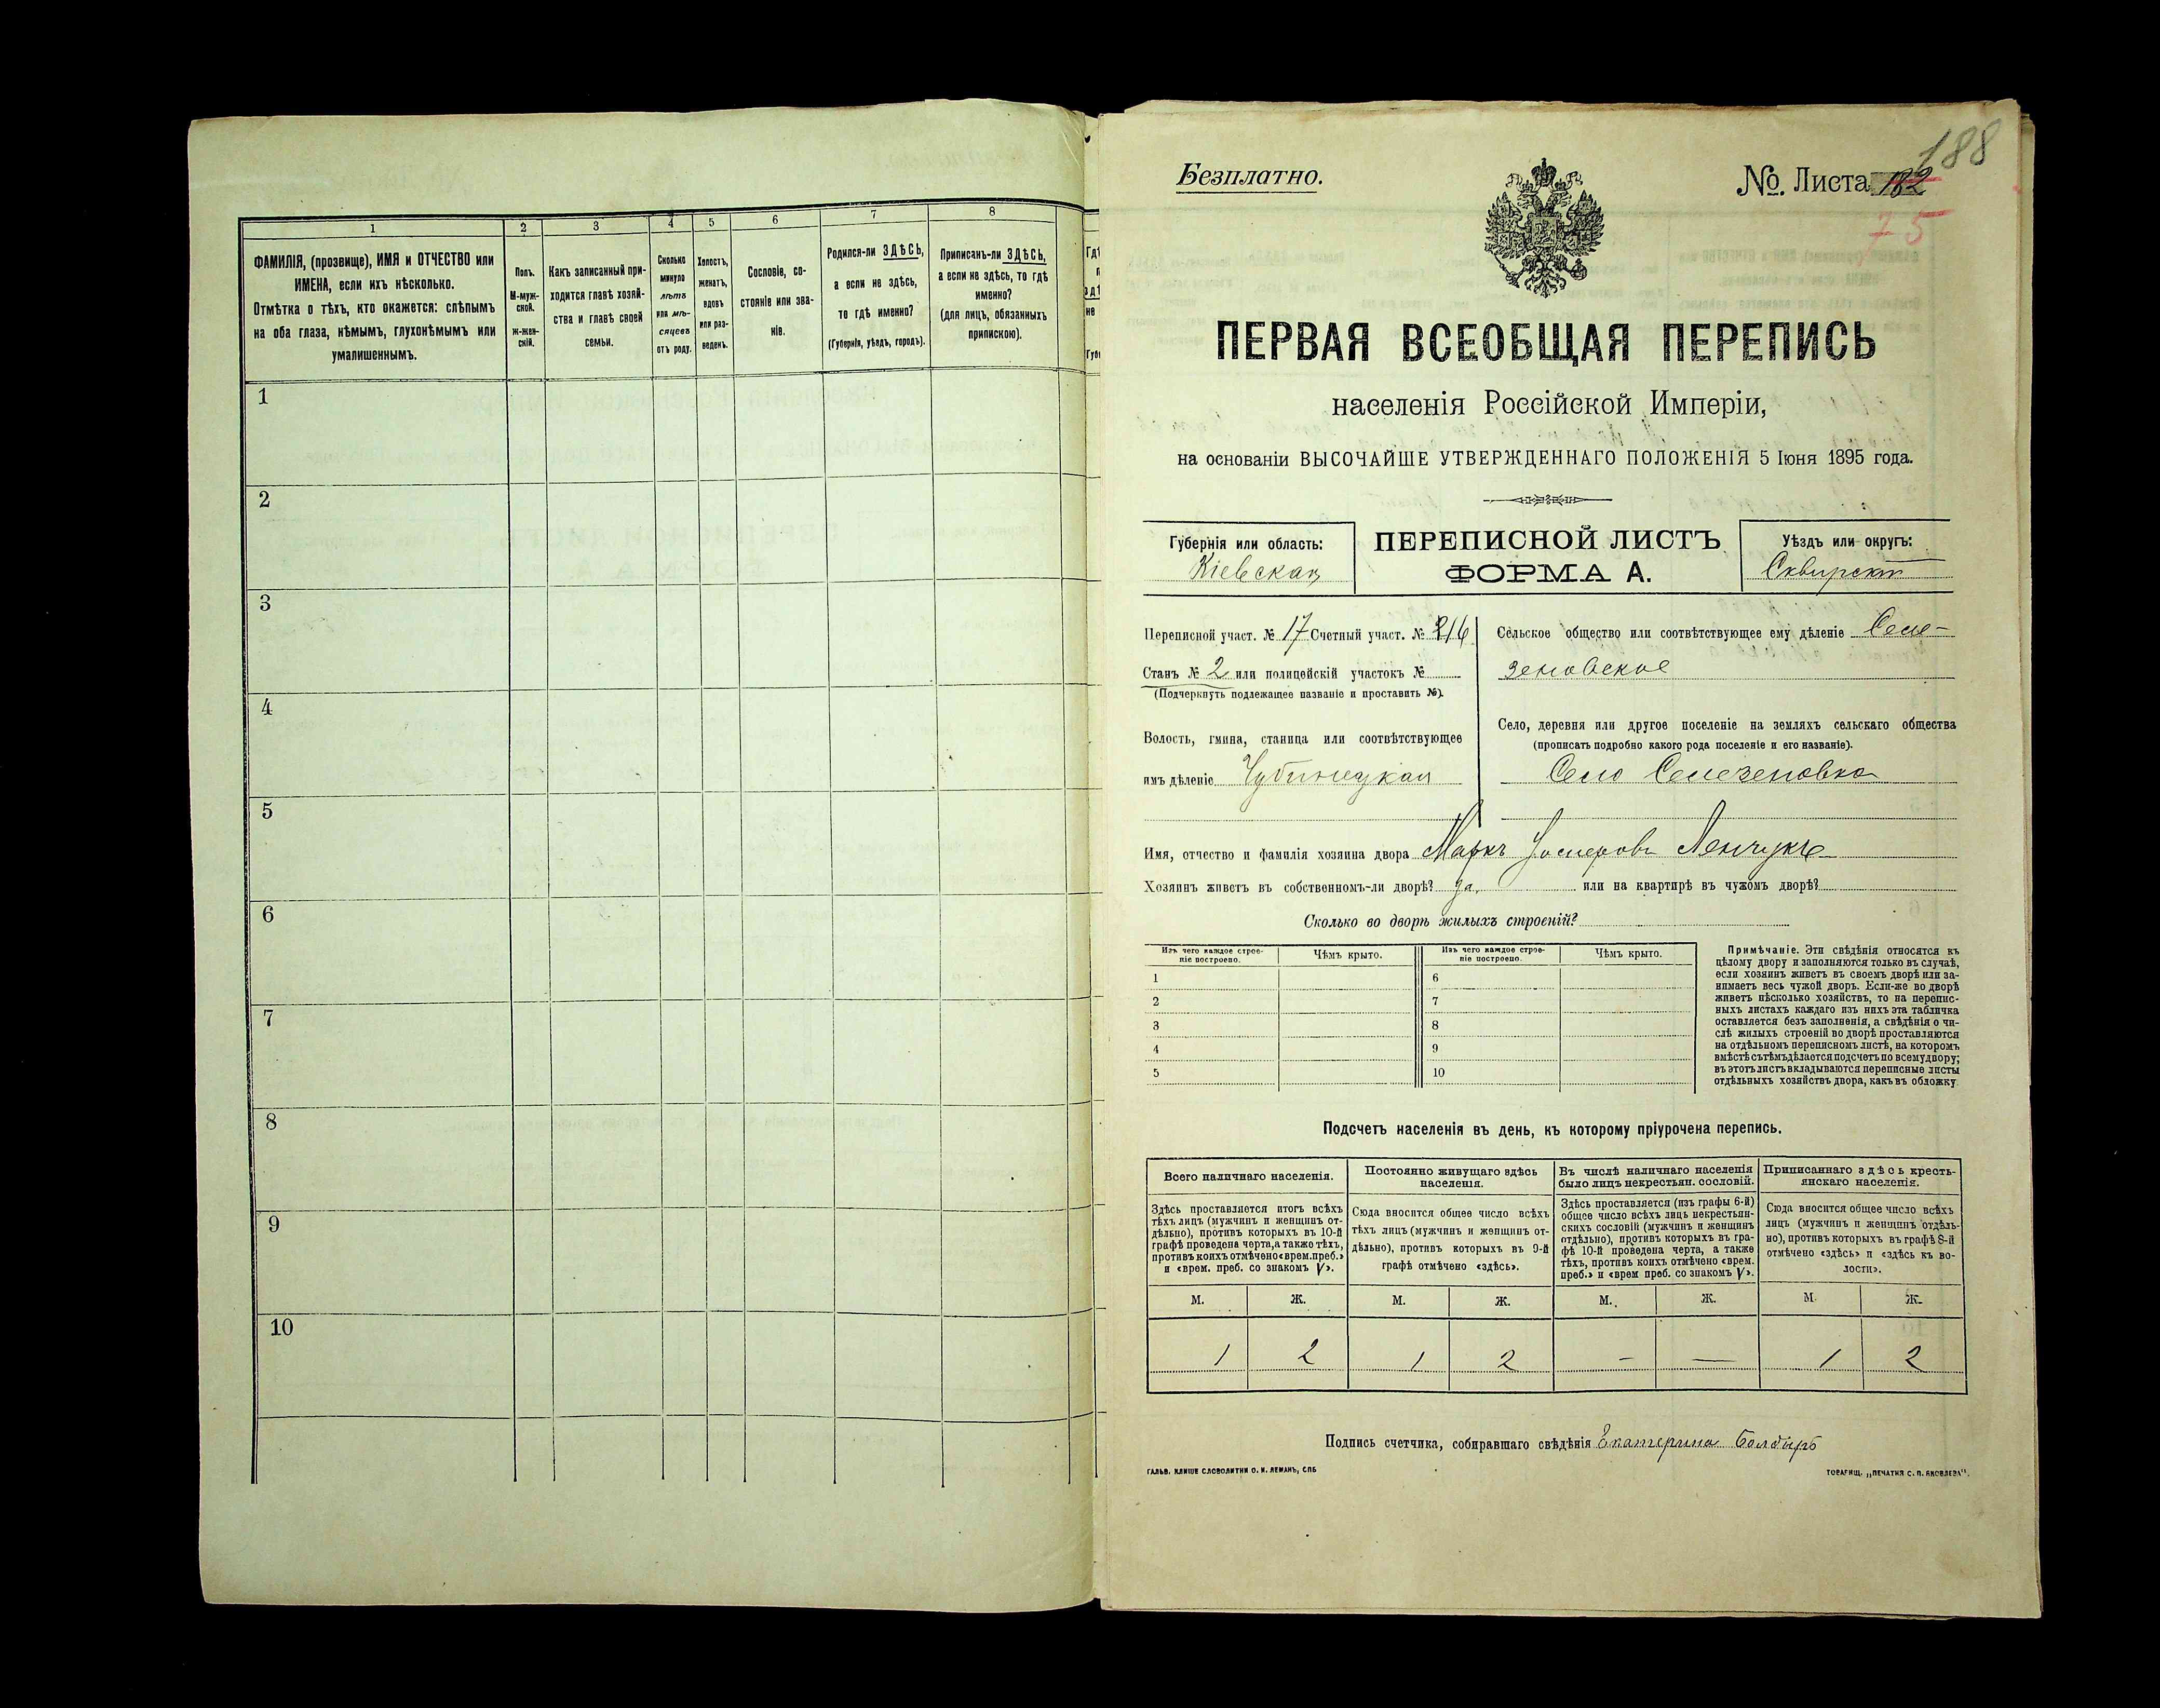 1
2
3
4
5
6
7
8
ФАМИЛІЯ, (прозвище), ИМЯ и ОТЧЕСТВО или
ИМЕНА, если ихъ нѣсколько.
Отмѣтка о тѣхъ, кто окажется: слѣпымъ
на оба глаза, нѣмымъ, глухонѣмымъ или
умалишеннымъ.
Полъ.
М-муж-
ской.
ж-жен-
скій.
Какъ записанный при-
ходится главѣ хозяй-
ства и главѣ своей
семьи.
Сколько
минуло
лѣтъ
или мѣ-
сяцевъ
отъ роду.
Холостъ,
женатъ,
вдовъ
или раз-
веденъ.
Сословіе, со-
стояніе или зва-
ніе.
Родился-ли ЗДѢСЬ,
а если не здѣсь,
то гдѣ именно?
(Губернія, уѣздъ, городъ).
Приписанъ-ли ЗДѢСЬ,
а если не здѣсь, то гдѣ
именно?
(для лицъ, обязанныхъ
припискою).
1
2
3
4
5
6
7
8
9
10
188
Безплатно.
№. Листа 182
75
ПЕРВАЯ ВСЕОБЩАЯ ПЕРЕПИСЬ
населенія Россійской Имперіи,
на основаніи ВЫСОЧАЙШЕ УТВЕРЖДЕННАГО ПОЛОЖЕНІЯ 5 Іюня 1895 года.
Губернія или область:
Кіевская
ПЕРЕПИСНОЙ ЛИСТЪ
ФОРМА А.
Уѣздъ или округъ:
Сквирскій
Переписной участ. № 17 Счетный участ. № 216
Станъ № 2 или полицейскій участокъ №
(Подчеркнуть подлежащее названіе и проставить №).
Волость, гмина, станица или соотвѣтствующее
имъ дѣленіе Чубинецкая
Сельское общество или соотвѣтствующее ему дѣленіе Селе-
зеновское
Село, деревня или другое поселеніе на земляхъ сельскаго общества
(прописать подробно какого рода поселеніе и его названіе).
Село Селезеновка
Имя, отчество и фамилія хозяина двора Маркъ Ленчукъ
Хозяинъ живетъ въ собственномъ-ли дворѣ? да. или на квартирѣ въ чужомъ дворѣ?
Сколько во дворѣ жилыхъ строеній?
Изъ чего каждое строе-
ніе построено.
Чѣмъ крыто.
Изъ чего каждое строе-
ніе построено.
Чѣмъ крыто.
1
2
3
4
5
6
7
8
9
10
Примѣчаніе. Эти свѣдѣнія относятся къ
цѣлому двору и заполняются только въ случаѣ,
если хозяинъ живетъ въ своемъ дворѣ или за-
нимаетъ весь чужой дворъ. Если-же во дворѣ
живетъ нѣсколько хозяйствъ, то на перепис-
ныхъ листахъ каждаго изъ нихъ эта табличка
оставляется безъ заполненія, а свѣдѣнія о чи-
слѣ жилыхъ строеній во дворѣ проставляются
на отдѣльномъ переписномъ листѣ, на которомъ
вмѣстѣ съ тѣмъ дѣлается подсчетъ по всему двору;
въ этотъ листъ вкладываются переписные листы
отдѣльныхъ хозяйствъ двора, какъ въ обложку.
Подсчетъ населенія въ день, къ которому пріурочена перепись.
Всего наличнаго населенія.
Постоянно живущаго здѣсь
населенія.
Въ числѣ наличнаго населенія
было лицъ некрестьян. сословій.
Приписаннаго здѣсь кресть-
янскаго населенія.
Здѣсь проставляется итогъ всѣхъ
тѣхъ лицъ (мужчинъ и женщинъ от-
дѣльно), противъ которыхъ въ 10-й
графѣ проведена черта, а также тѣхъ,
противъ коихъ отмѣчено «врем. преб.»
и «врем. преб. со знакомъ V».
Сюда вносится общее число всѣхъ
тѣхъ лицъ (мужчинъ и женщинъ от-
дѣльно), противъ которыхъ въ 9-й
графѣ отмѣчено «здѣсь».
Здѣсь проставляется (изъ графы 6-й)
общее число всѣхъ лицъ некрестьян-
скихъ сословій (мужчинъ и женщинъ
отдѣльно), противъ которыхъ въ гра-
фѣ 10-й проведена черта, а также
тѣхъ, противъ коихъ отмѣчено «врем.
преб.» и «врем преб. со знакомъ V».
Сюда вносится общее число всѣхъ
лицъ (мужчинъ и женщинъ отдѣль-
но), противъ которыхъ въ графѣ 8-й
отмѣчено «здѣсь» и «здѣсь въ во-
лости».
М. Ж. М. Ж. М. Ж. М. Ж.
1 2 1 2 — — 1 2
Подпись счетчика, собиравшаго свѣдѣнія Екатерина Болдырь
ГАЛЬВ. КЛИШЕ СЛОВОЛИТНИ О. И. ЛЕМАНЪ, СПБ
ТОВАРИЩ. „ПЕЧАТНЯ С. П. ЯКОВЛЕВА".